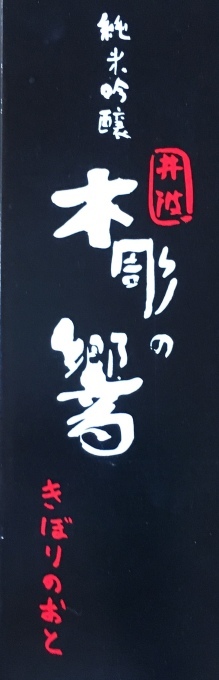 純米吟醸
井波
木彫の響
きぼりのおと